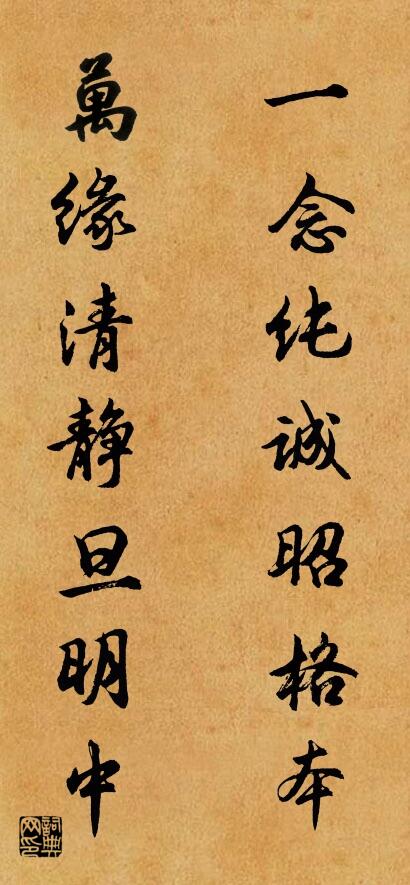 一念纯诚昭格本
萬缘清静旦明中
詞典网印